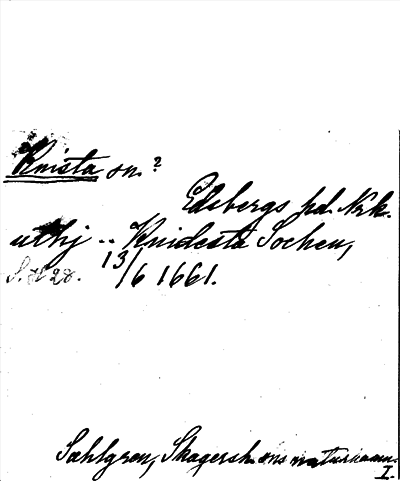 Knista sn.?
Edsbergs hd. Nrk.
uthj .. Knidesta Sochen,
13/6 1661.
Sahlgren, Skagersh. ons naturnamn.
I.